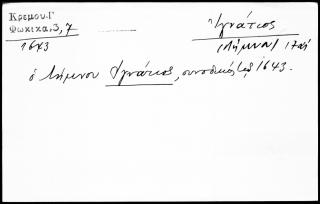 Κρεμου-Γ
Φωκικα, 3, 7
1643
Ἰγνάτιος
(Λήμνου)
ὁ Λήμνου Ἰγνάτιος, συνοδικός 1643.